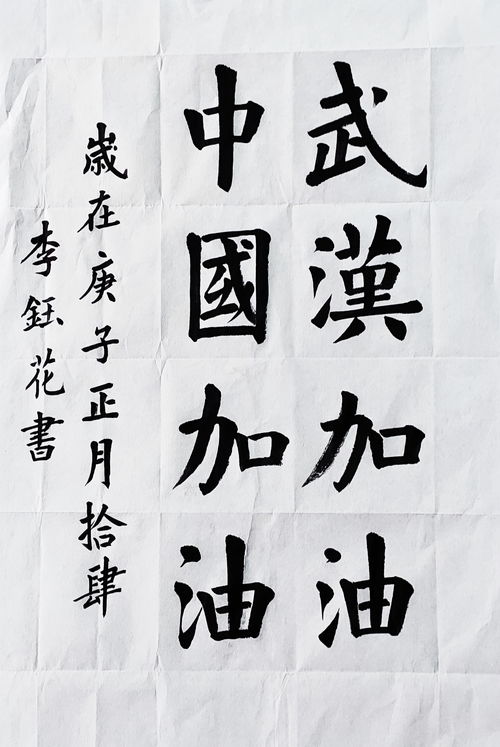 武漢加油
中國加油
歲在庚子正月拾肆
李鈺花書